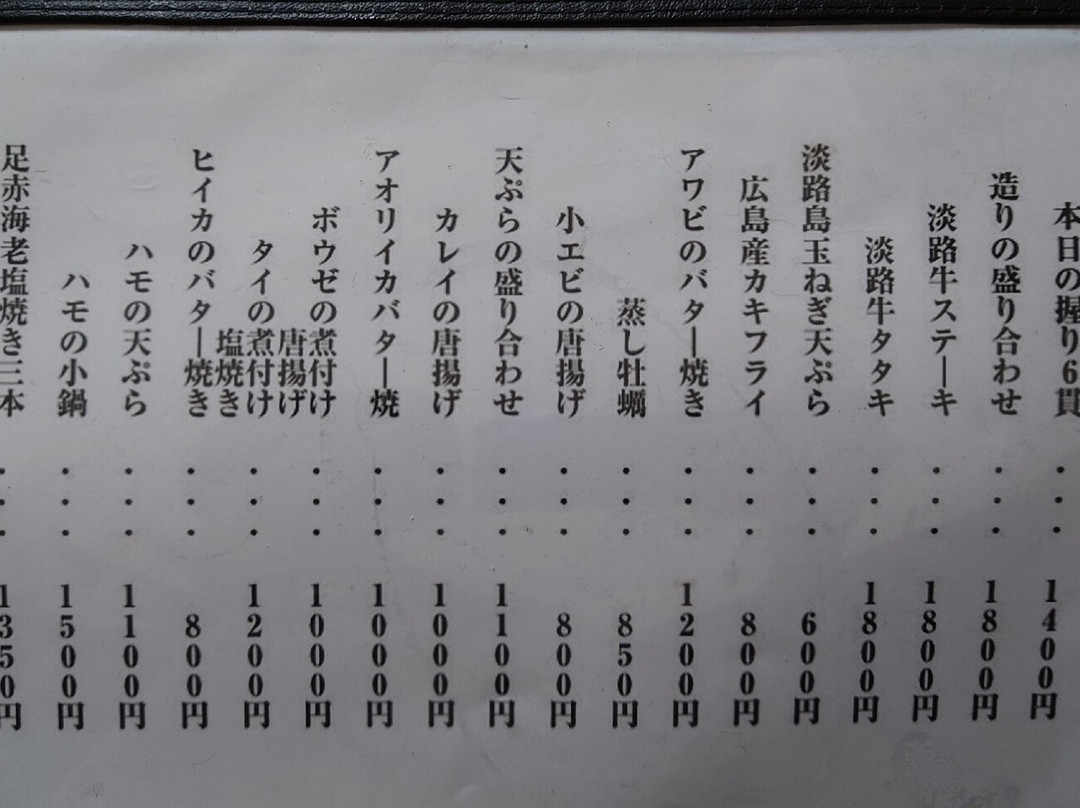 本日の握り6貫・・・1400円
造りの盛り合わせ・・・1800円
淡路牛ステーキ・・・1800円
淡路牛タタキ・・・1800円
淡路島玉ねぎ天ぷら・・・600円
広島産カキフライ・・・800円
アワビのバター焼き・・・1200円
蒸し牡蠣・・・850円
小エビの唐揚げ・・・800円
天ぷらの盛り合わせ・・・1100円
カレイの唐揚げ・・・1000円
アオリイカバター焼・・・1000円
ボウゼの煮付け 唐揚げ・・・1000円
タイの煮付け 塩焼き・・・1200円
ヒイカのバター焼き・・・800円
ハモの天ぷら・・・1100円
ハモの小鍋・・・1500円
足赤海老塩焼き三本・・・1350円